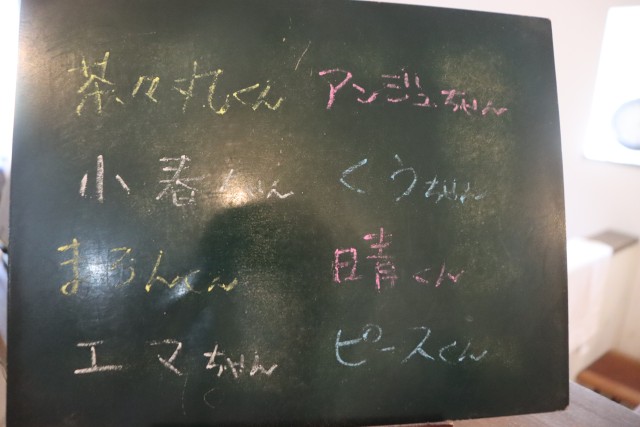 茶々丸くん アンジュちゃん
小春ちゃん くうちゃん
まろんくん 日青くん
エマちゃん ピースくん